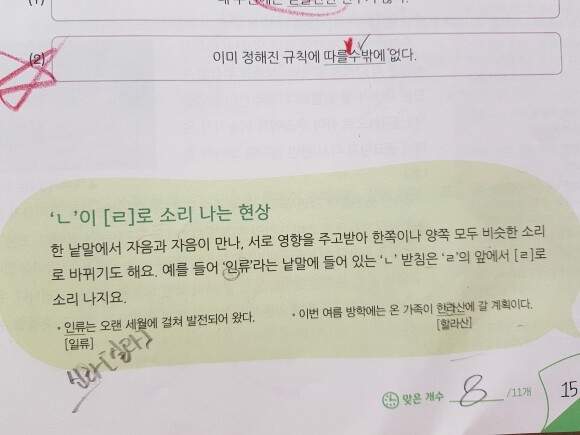 (2) 이미 정해진 규칙에 따를수밖에 없다.
‘ㄴ’이 [ㄹ]로 소리 나는 현상
한 낱말에서 자음과 자음이 만나, 서로 영향을 주고받아 한쪽이나 양쪽 모두 비슷한 소리
로 바뀌기도 해요. 예를 들어 ‘인류’라는 낱말에 들어 있는 ‘ㄴ’ 받침은 ‘ㄹ’의 앞에서 [ㄹ]로
소리 나지요.
• 인류는 오랜 세월에 걸쳐 발전되어 왔다.
[일류]
• 이번 여름 방학에는 온 가족이 한라산에 갈 계획이다.
[할라산]
신라[실라]
맞은 개수 8 /11개
15